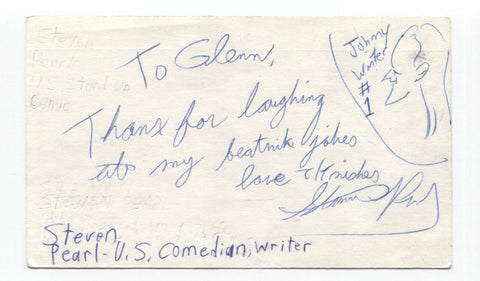 Steven
Pearl
U.S. Stand up
Comic
To Glenn,
Thanx for laughing
at my beatnik jokes
love + Knishes
Steven Pearl
Johnny
Winter
#
1
Steven
Pearl - U.S. Comedian, writer